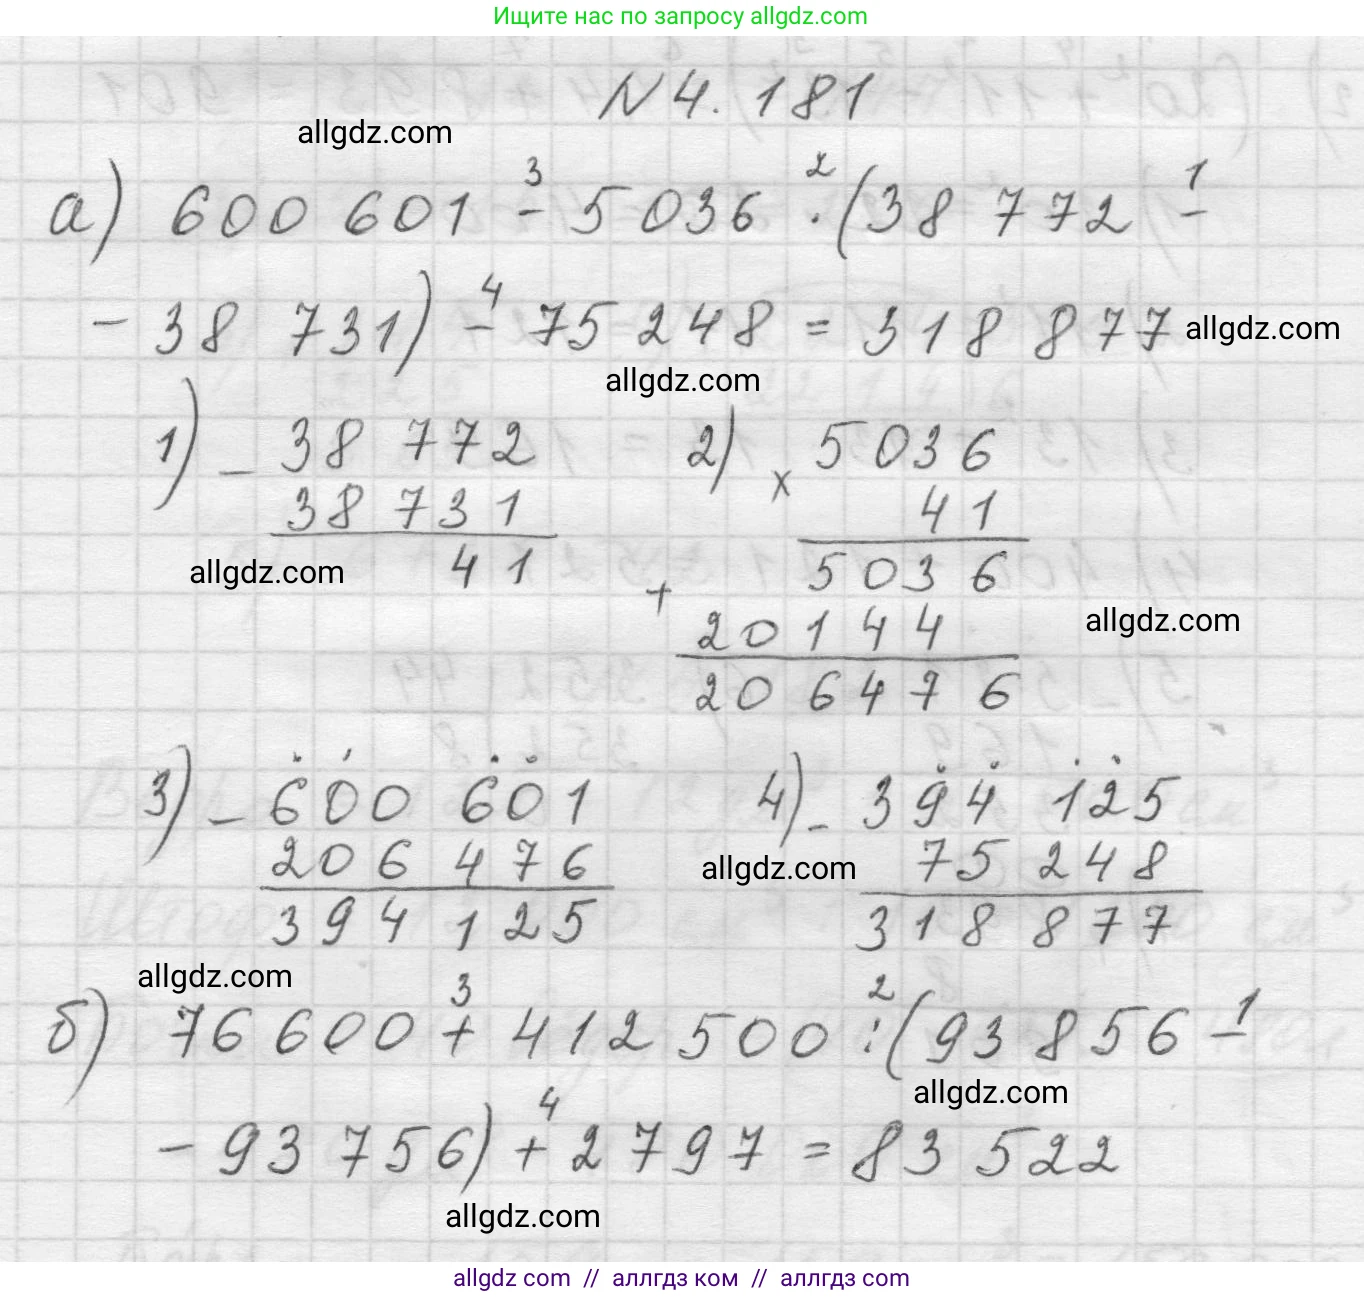 Ищите нас по запросу allgdz.com
N 4.181
allgdz.com
а) 600 601 - 5 036 · (38 772 -
3 2 1
- 38 731) - 75 248 = 318 877
4
allgdz.com
allgdz.com
1) - 38 772
38 731
41
allgdz.com
2) x 5036
41
5036
+ 20144
206476
allgdz.com
3) - 600 601
206 476
394 125
4) - 394 125
75 248
318 877
allgdz.com
allgdz.com
б) 76 600 + 412 500 : (93 856 -
3 2 1
allgdz.com
- 93 756) + 2 797 = 83 522
4
allgdz.com
allgdz com // аллгдз ком // аллгдз.com